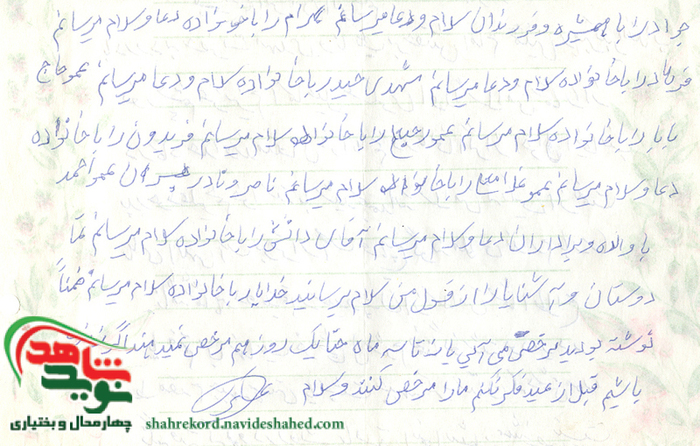 جواد را با همشیره و فرزندان سلام و دعا میرسانم بهرام را با خانواده دعا و سلام میرسانم
فرهاد را با خانواده سلام و دعا میرسانم مشهدی حیدر با خانواده سلام و دعا میرسانم عمو حاج
بابا را با خانواده سلام میرسانم عمو را با خانواده سلام میرسانم فریدون را با خانواده
دعا و سلام میرسانم عمو را با خانواده سلام میرسانم ناصر و نادر پسران عمو احمد
با والده و برادران دعا و سلام میرسانم آقای دانش را با خانواده سلام میرسانم تما
دوستان و آشنایا را از قول من سلام برسانید خدایار با خانواده سلام میرسانم ضمناً
نوشته بودید مرخصی می آئی یا نه تا سه ماه حتا یک روز هم مرخصی نمیدهند اگر زنده
باشیم قبل از عید فکر نکنم ما را مرخص کنند وسلام
نوید شاهد
چهارمحال و بختیاری
shahrekord.navideshahed.com